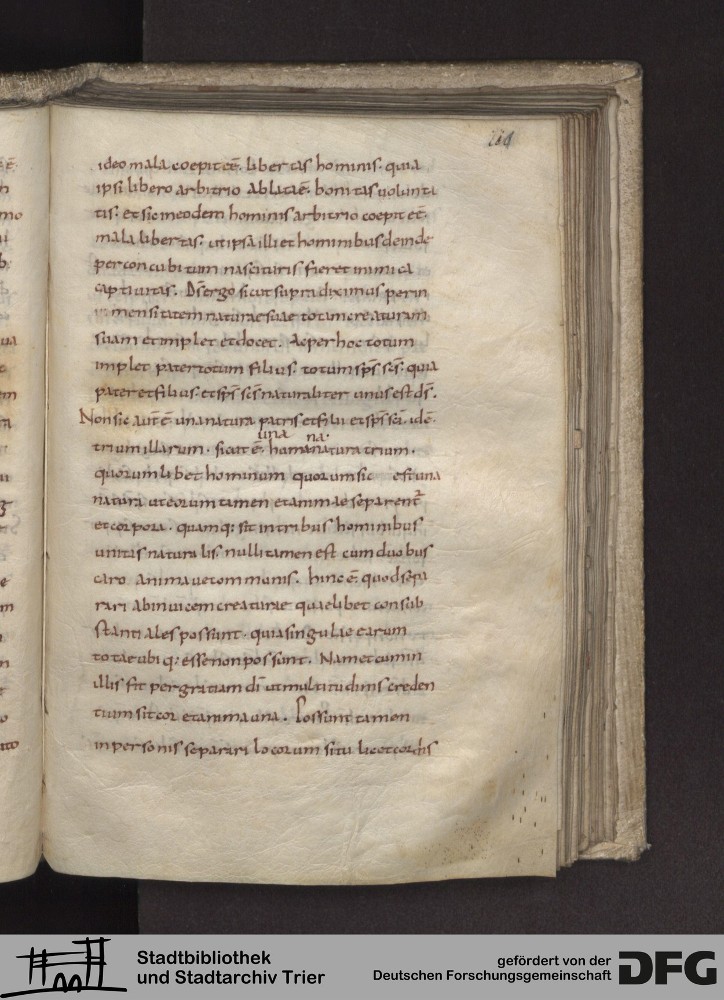 114
ideo mala coepit eē. libertas hominis. quia
ipsi libero arbitrio ablata ē. bonitas volunta
tis. et sic in eodem hominis arbitrio coepit eē.
mala libertas. ut ipsa illi et hominibus deinde
per concubitum nascituris fieret inimica
captivitas. Dš ergo sicut supra diximus per in
mensitatem naturae suae totam creaturam
suam et implet et docet. Ac per hoc totum
implet pater totum filius. totum sp̄s sc̄s. quia
pater et filius. et sp̄s sc̄s naturaliter unus est ds̄.
Non sic aut̄ ē una natura patris et filii et sp̄s sc̄i. idē
una na.
trium illarum. sicut ē. humana natura trium.
quorumlibet hominum quorum sic est una
natura ut eorum tamen et animae separent̄
et corpora. quamq: sit in tribus hominibus
unitas naturalis. nulli tamen est cum duobus
caro anima ve communis. hinc ē. quod sepa
rari ab invicem creaturae quaelibet consub
stantiales possunt. quia singulae earum
totae ubiq: esse non possunt. Nam et cum in
illis fit per gratiam dī ut multitudinis creden
tium sit cor et anima una. Possunt tamen
in personis separari locorum situ licet cordis
Stadtbibliothek
und Stadtarchiv Trier
gefördert von der
Deutschen Forschungsgemeinschaft
DFG